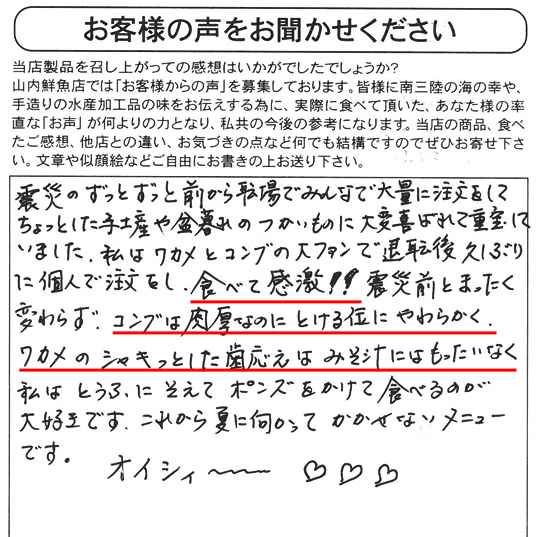 お客様の声をお聞かせください
当店製品を召し上がっての感想はいかがでしたでしょうか?
山内鮮魚店では「お客様からの声」を募集しております。皆様に南三陸の海の幸や、
手造りの水産加工品の味をお伝えする為に、実際に食べて頂いた、あなた様の率
直な「お声」が何よりの力となり、私共の今後の参考になります。当店の商品、食べ
たご感想、他店との違い、お気づきの点など何でも結構ですのでぜひお寄せ下さ
い。文章や似顔絵などご自由にお書きの上お送り下さい。
震災のずっとずっと前から職場でみんなで大量に注文をして
ちょっとした手土産や盆暮れのつかいものに大変喜ばれて重宝して
いました。私はワカメとコンブの大ファンで退転後久しぶり
に個人で注文をし、食べて感激!! 震災前とまったく
変わらず、コンブは肉厚なのにとける位にやわらかく、
ワカメのシャキっとした歯応えはみそ汁にはもったいなく
私はとうふにそえてポンズをかけて食べるのが
大好きです。これから夏に向かってかかせないメニュー
です。
オイシィ〜〜 ♡♡♡